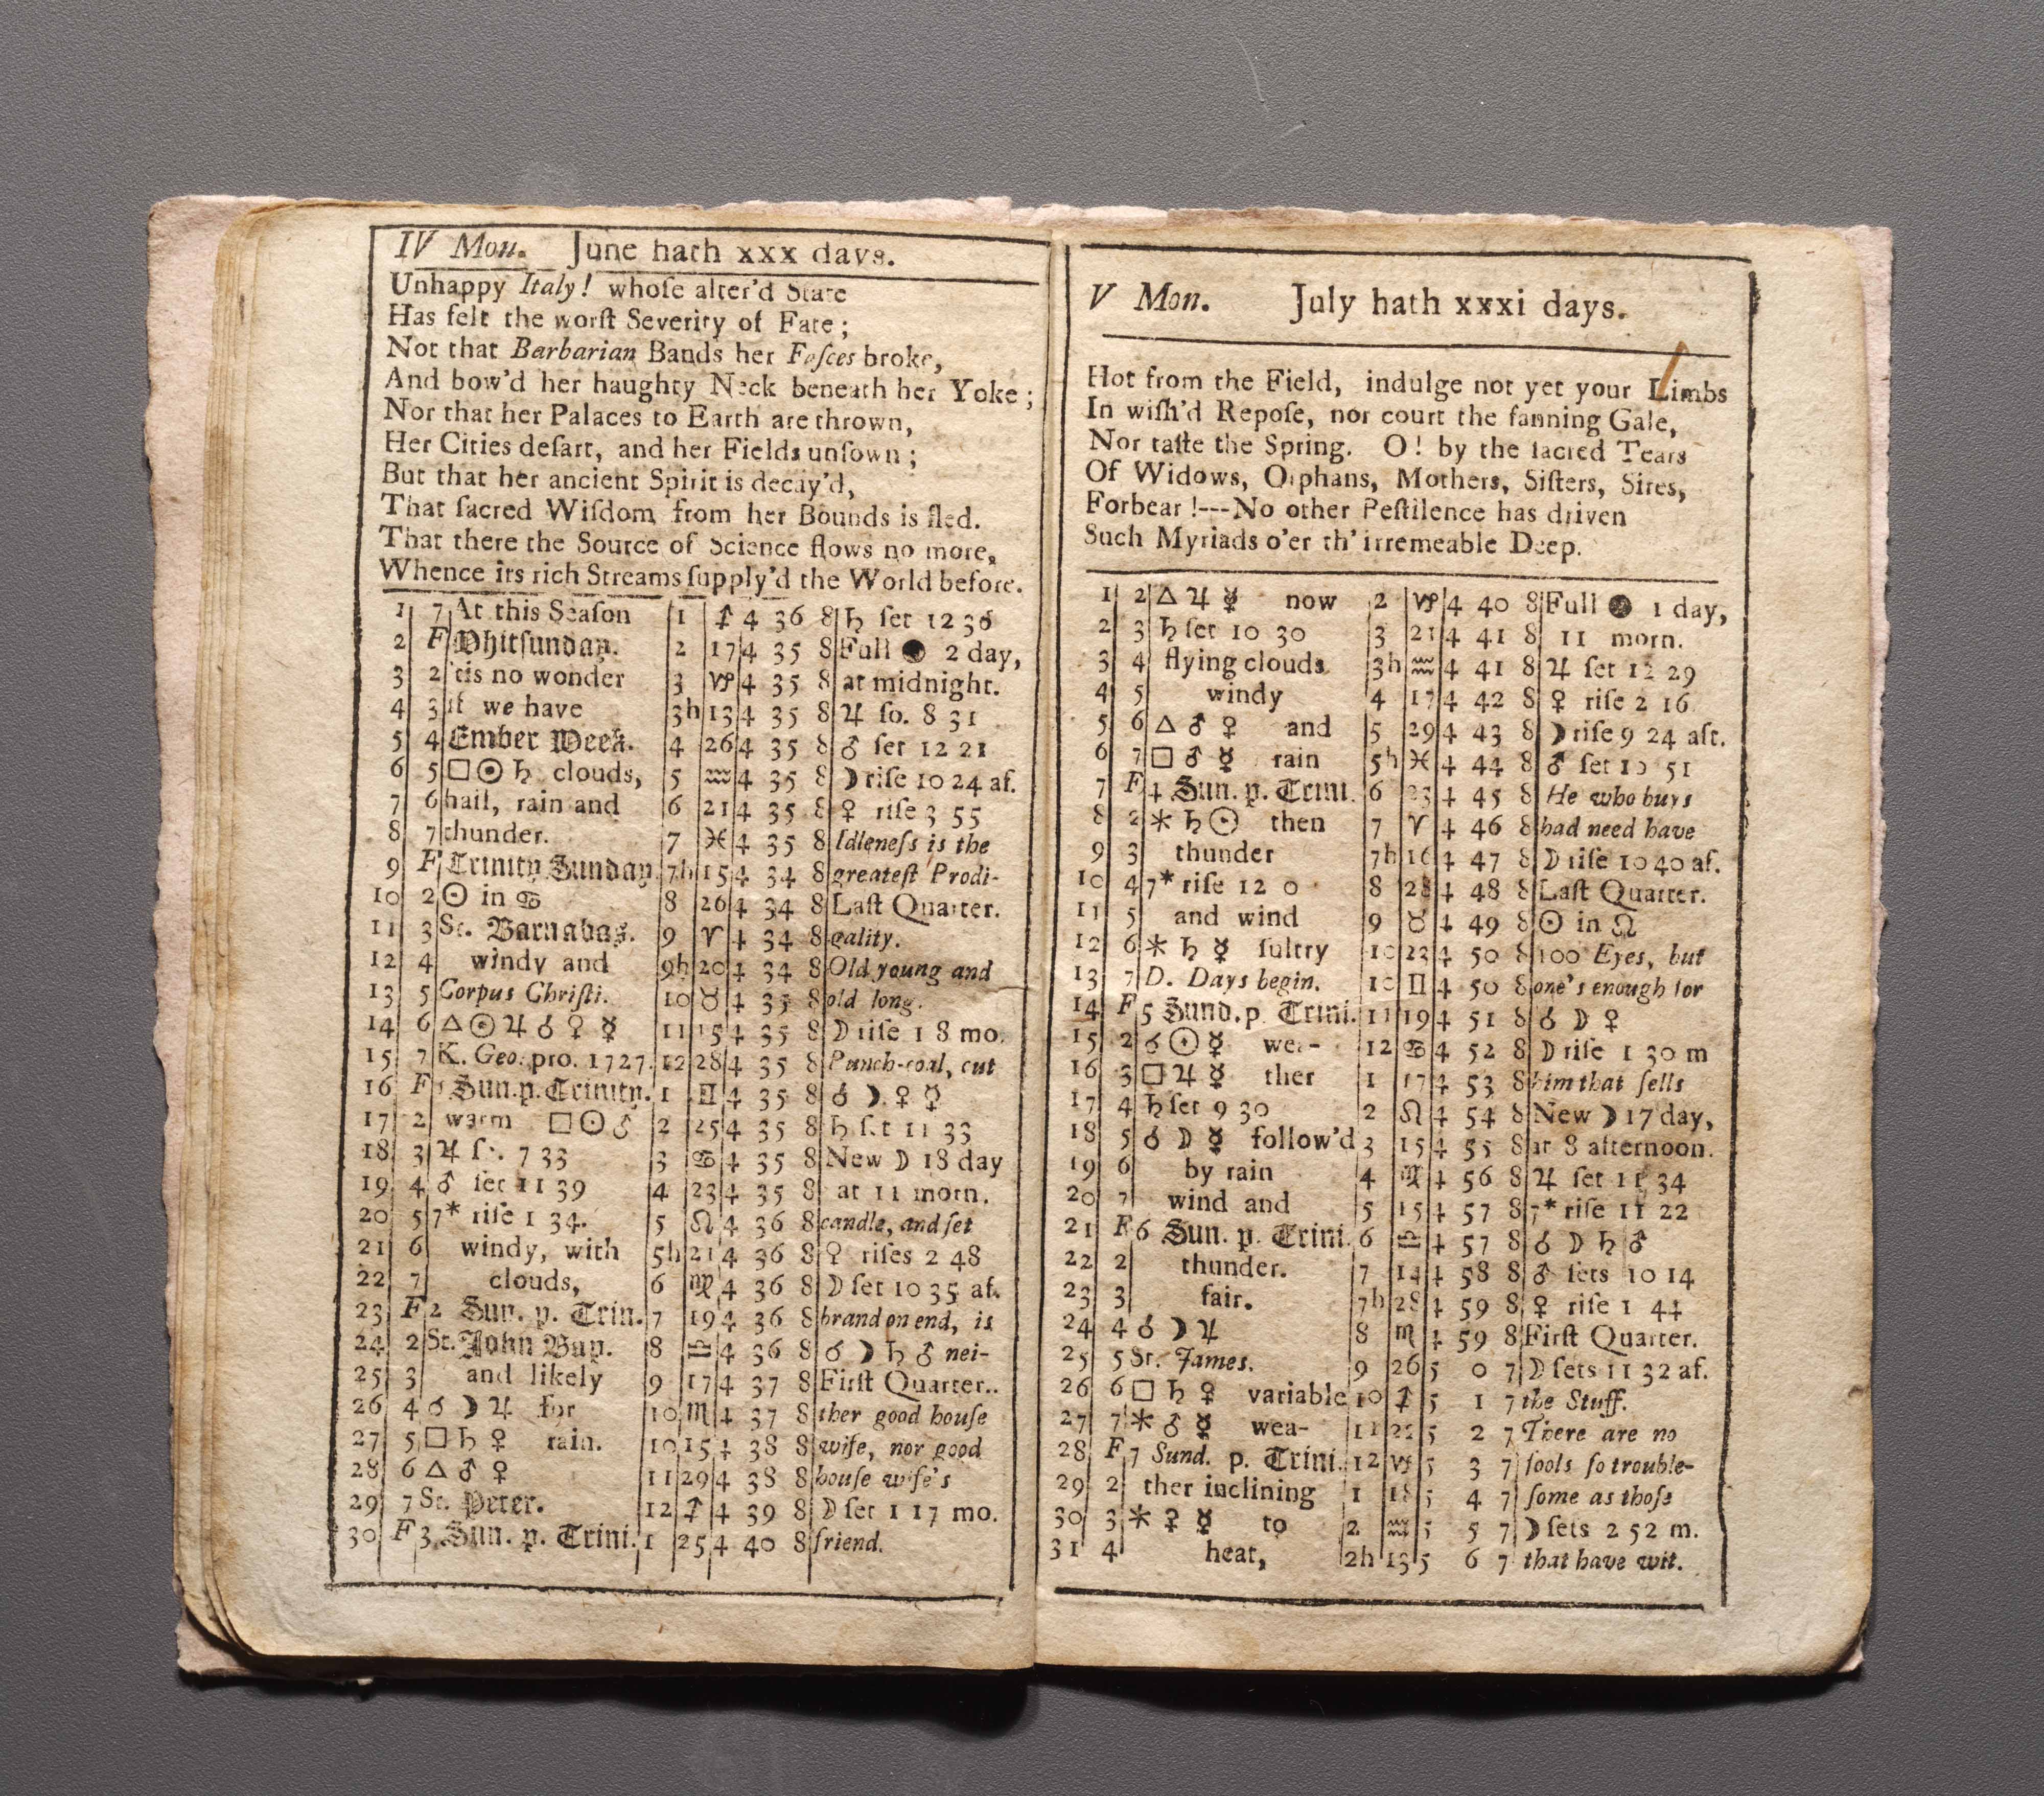 IV Mon. June hath xxx days.
Unhappy Italy! whoſe alter'd State
Has felt the worſt Severity of Fate;
Not that Barbarian Bands her Faſces broke,
And bow'd her haughty Neck beneath her Yoke;
Nor that her Palaces to Earth are thrown,
Her Cities deſart, and her Fields unſown;
But that her ancient Spirit is decay'd,
That ſacred Wiſdom from her Bounds is fled.
That there the Source of Science flows no more,
Whence its rich Streams ſupply'd the World before.
1 7 At this Seaſon 1 ♐ 4 36 8 ♄ ſet 12 36
2 F Whitſunday. 2 17 4 35 8 Full ● 2 day,
3 2 'tis no wonder 3 ♑ 4 35 8 at midnight.
4 3 if we have 3h 13 4 35 8 ♃ ſo. 8 31
5 4 Ember Week. 4 26 4 35 8 ♂ ſet 12 21
6 5 □ ☉ ♄ clouds, 5 ♒ 4 35 8 ☽ riſe 10 24 af.
7 6 hail, rain and 6 21 4 35 8 ♀ riſe 3 55
8 7 thunder. 7 ♓ 4 35 8 Idleneſs is the
9 F Trinity Sunday. 7h 15 4 34 8 greateſt Prodi-
10 2 ☉ in ♋ 8 26 4 34 8 Laſt Quarter.
11 3 St. Barnabas. 9 ♈ 4 34 8 gality.
12 4 windy and 9h 20 4 34 8 Old young and
13 5 Corpus Chriſti. 10 ♉ 4 35 8 old long.
14 6 △ ☉ ♃ ☌ ♀ ☿ 11 15 4 35 8 ☽ riſe 1 8 mo.
15 7 K. Geo. pro. 1727. 12 28 4 35 8 Punch-coal, cut
16 F 1 Sun. p. Trinity. 1 ♊ 4 35 8 ☌ ☽ ♀ ☿
17 2 warm □ ☉ ♂ 2 25 4 35 8 ♄ ſet 11 33
18 3 ♃ 7 33 3 ♋ 4 35 8 New ☽ 18 day
19 4 ♂ ſet 11 39 4 23 4 35 8 at 11 morn.
20 5 7* riſe 1 34. 5 ♌ 4 36 8 candle, and ſet
21 6 windy, with 5h 21 4 36 8 ♀ riſes 2 48
22 7 clouds, 6 ♍ 4 36 8 ☽ ſet 10 35 af.
23 F 2 Sun. p. Trin. 7 19 4 36 8 brand on end, is
24 2 St. John Bap. 8 ♎ 4 36 8 ☌ ☽ ♄ ♂ nei-
25 3 and likely 9 17 4 37 8 Firſt Quarter..
26 4 ☌ ☽ ♃ for 10 ♏ 4 37 8 ther good houſe
27 5 □ ♄ ♀ rain. 10 15 4 38 8 wife, nor good
28 6 △ ♂ ♀ 11 29 4 38 8 houſe wife's
29 7 St. Peter. 12 ♐ 4 39 8 ☽ ſet 1 17 mo.
30 F 3 Sun. p. Trini. 1 25 4 40 8 friend.
V Mon. July hath xxxi days.
Hot from the Field, indulge not yet your Limbs
In wiſh'd Repoſe, nor court the fanning Gale,
Nor taſte the Spring. O! by the ſacred Tears
Of Widows, Orphans, Mothers, Siſters, Sires,
Forbear!---No other Peſtilence has driven
Such Myriads o'er th' irremeable Deep.
1 2 △ ♃ ☿ now 2 ♑ 4 40 8 Full ● 1 day,
2 3 ♄ ſet 10 30 3 21 4 41 8 11 morn.
3 4 flying clouds 3h ♒ 4 41 8 ♃ ſet 12 29
4 5 windy 4 17 4 42 8 ♀ riſe 2 16
5 6 △ ♂ ♀ and 5 29 4 43 8 ☽ riſe 9 24 aft.
6 7 □ ♂ ☿ rain 5h ♓ 4 44 8 ♂ ſet 10 51
7 F 4 Sun. p. Trini. 6 23 4 45 8 He who buys
8 2 * ♄ ☉ then 7 ♈ 4 46 8 had need have
9 3 thunder 7h 16 4 47 8 ☽ riſe 10 40 af.
10 4 7* riſe 12 0 8 28 4 48 8 Laſt Quarter.
11 5 and wind 9 ♉ 4 49 8 ☉ in ♌
12 6 * ♄ ☿ ſultry 10 23 4 50 8 100 Eyes, but
13 7 D. Days begin. 10 ♊ 4 50 8 one's enough for
14 F 5 Sund. p Trini. 11 19 4 51 8 ☌ ☽ ♀
15 2 ☌ ☉ ☿ wea- 12 ♋ 4 52 8 ☽ riſe 1 30 m
16 3 □ ♃ ☿ ther 1 17 4 53 8 him that ſells
17 4 ♄ ſet 9 30 2 ♌ 4 54 8 New ☽ 17 day,
18 5 ☌ ☽ ☿ follow'd 3 15 4 55 8 at 8 afternoon.
19 6 by rain 4 ♍ 4 56 8 ♃ ſet 11 34
20 7 wind and 5 15 4 57 8 7* riſe 11 22
21 F 6 Sun. p. Trini. 6 ♎ 4 57 8 ☌ ☽ ♄ ♂
22 2 thunder. 7 14 4 58 8 ♂ ſets 10 14
23 3 fair. 7h 28 4 59 8 ♀ riſe 1 44
24 4 ☌ ☽ ♃ 8 ♏ 4 59 8 Firſt Quarter.
25 5 St. James. 9 26 5 0 7 ☽ ſets 11 32 af.
26 6 □ ♄ ♀ variable 10 ♐ 5 1 7 the Stuff.
27 7 * ♂ ☿ wea- 11 22 5 2 7 There are no
28 F 7 Sund. p. Trini. 12 ♑ 5 3 7 fools ſo trouble-
29 2 ther inclining 1 18 5 4 7 ſome as thoſe
30 3 * ♀ ☿ to 2 ♒ 5 5 7 ☽ ſets 2 52 m.
31 4 heat, 2h 13 5 6 7 that have wit.